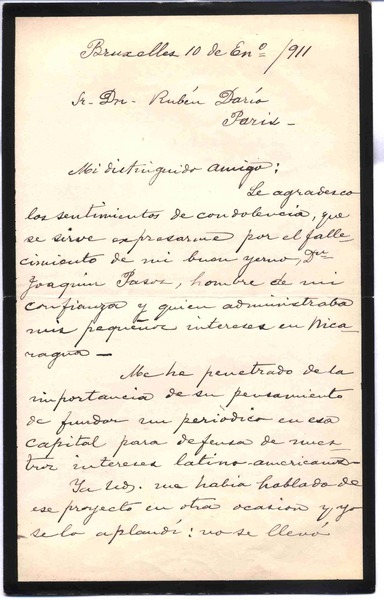 Bruxelles 10 de Enº/911
Sr. Dn. Rubén Darío
Paris-
Mi distinguido amigo:
Le agradesco
los sentimientos de condolencia, que
se sirve expresarme por el falle-
cimiento de mi buen yerno, Dn
Joaquín Pasos, hombre de mi
confianza y quien administraba
mis pequeños intereses en Nica
ragua-
Me he penetrado de la
importancia de su pensamiento
de fundar un periòdico en esa
capital para defensa de nues
tros intereses latino-americanos-
Ya Ud. me habia hablado de
ese proyecto en otra ocasion y yo
se lo aplaudí: no se llevó